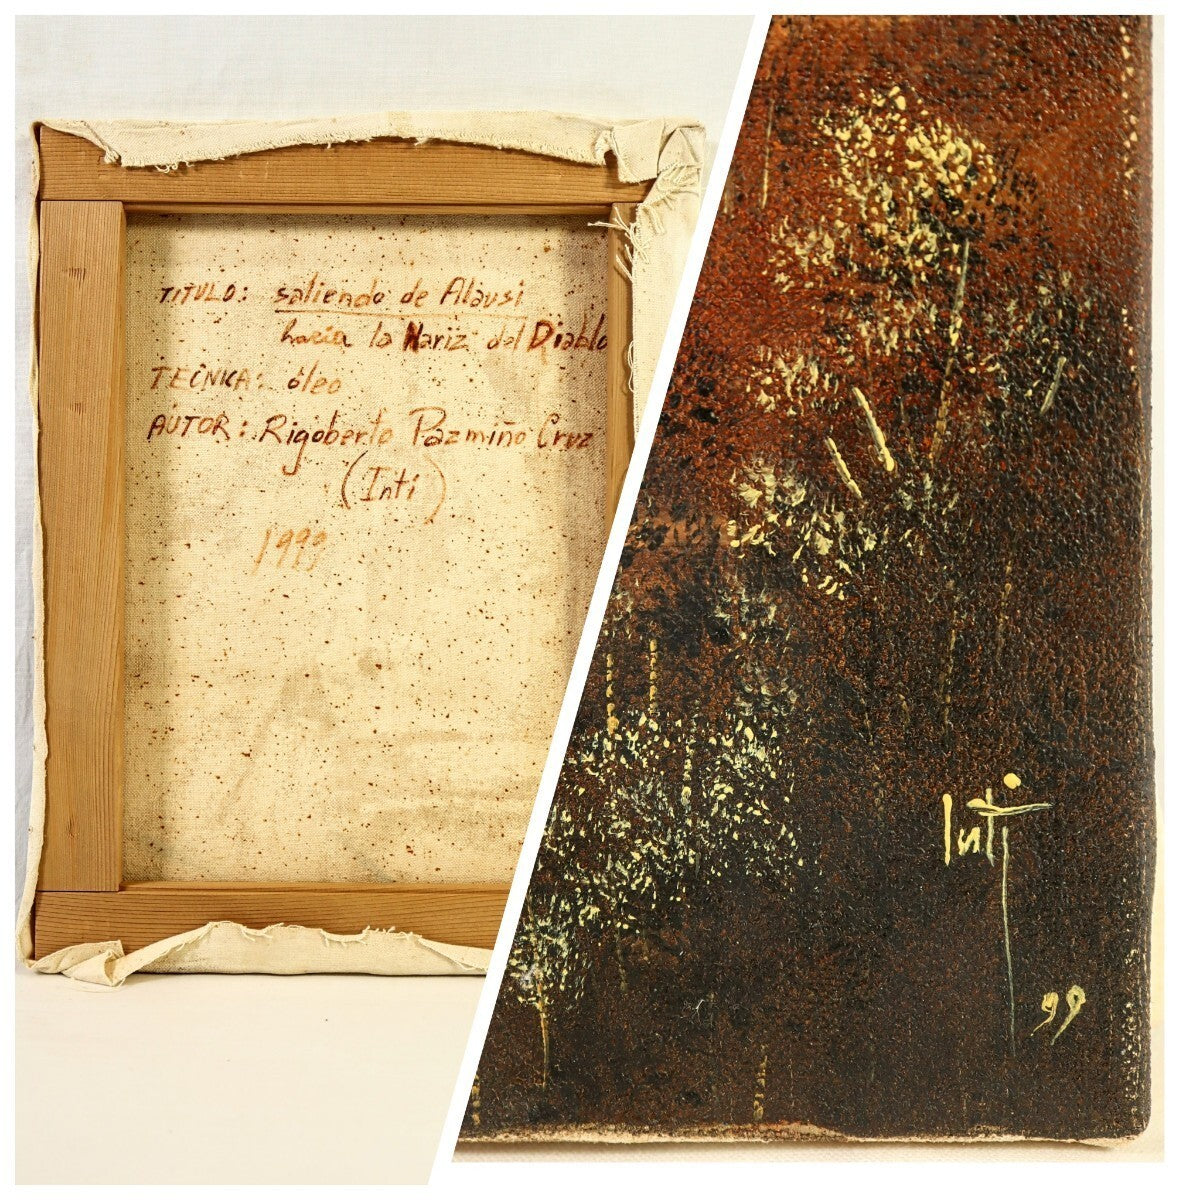 TITULO: saliendo de Alausi
hacia la Nariz del Diablo
TECNICA: óleo
AUTOR: Rigoberto Pazmiño Cruz
(Inti)
1999
Inti
99